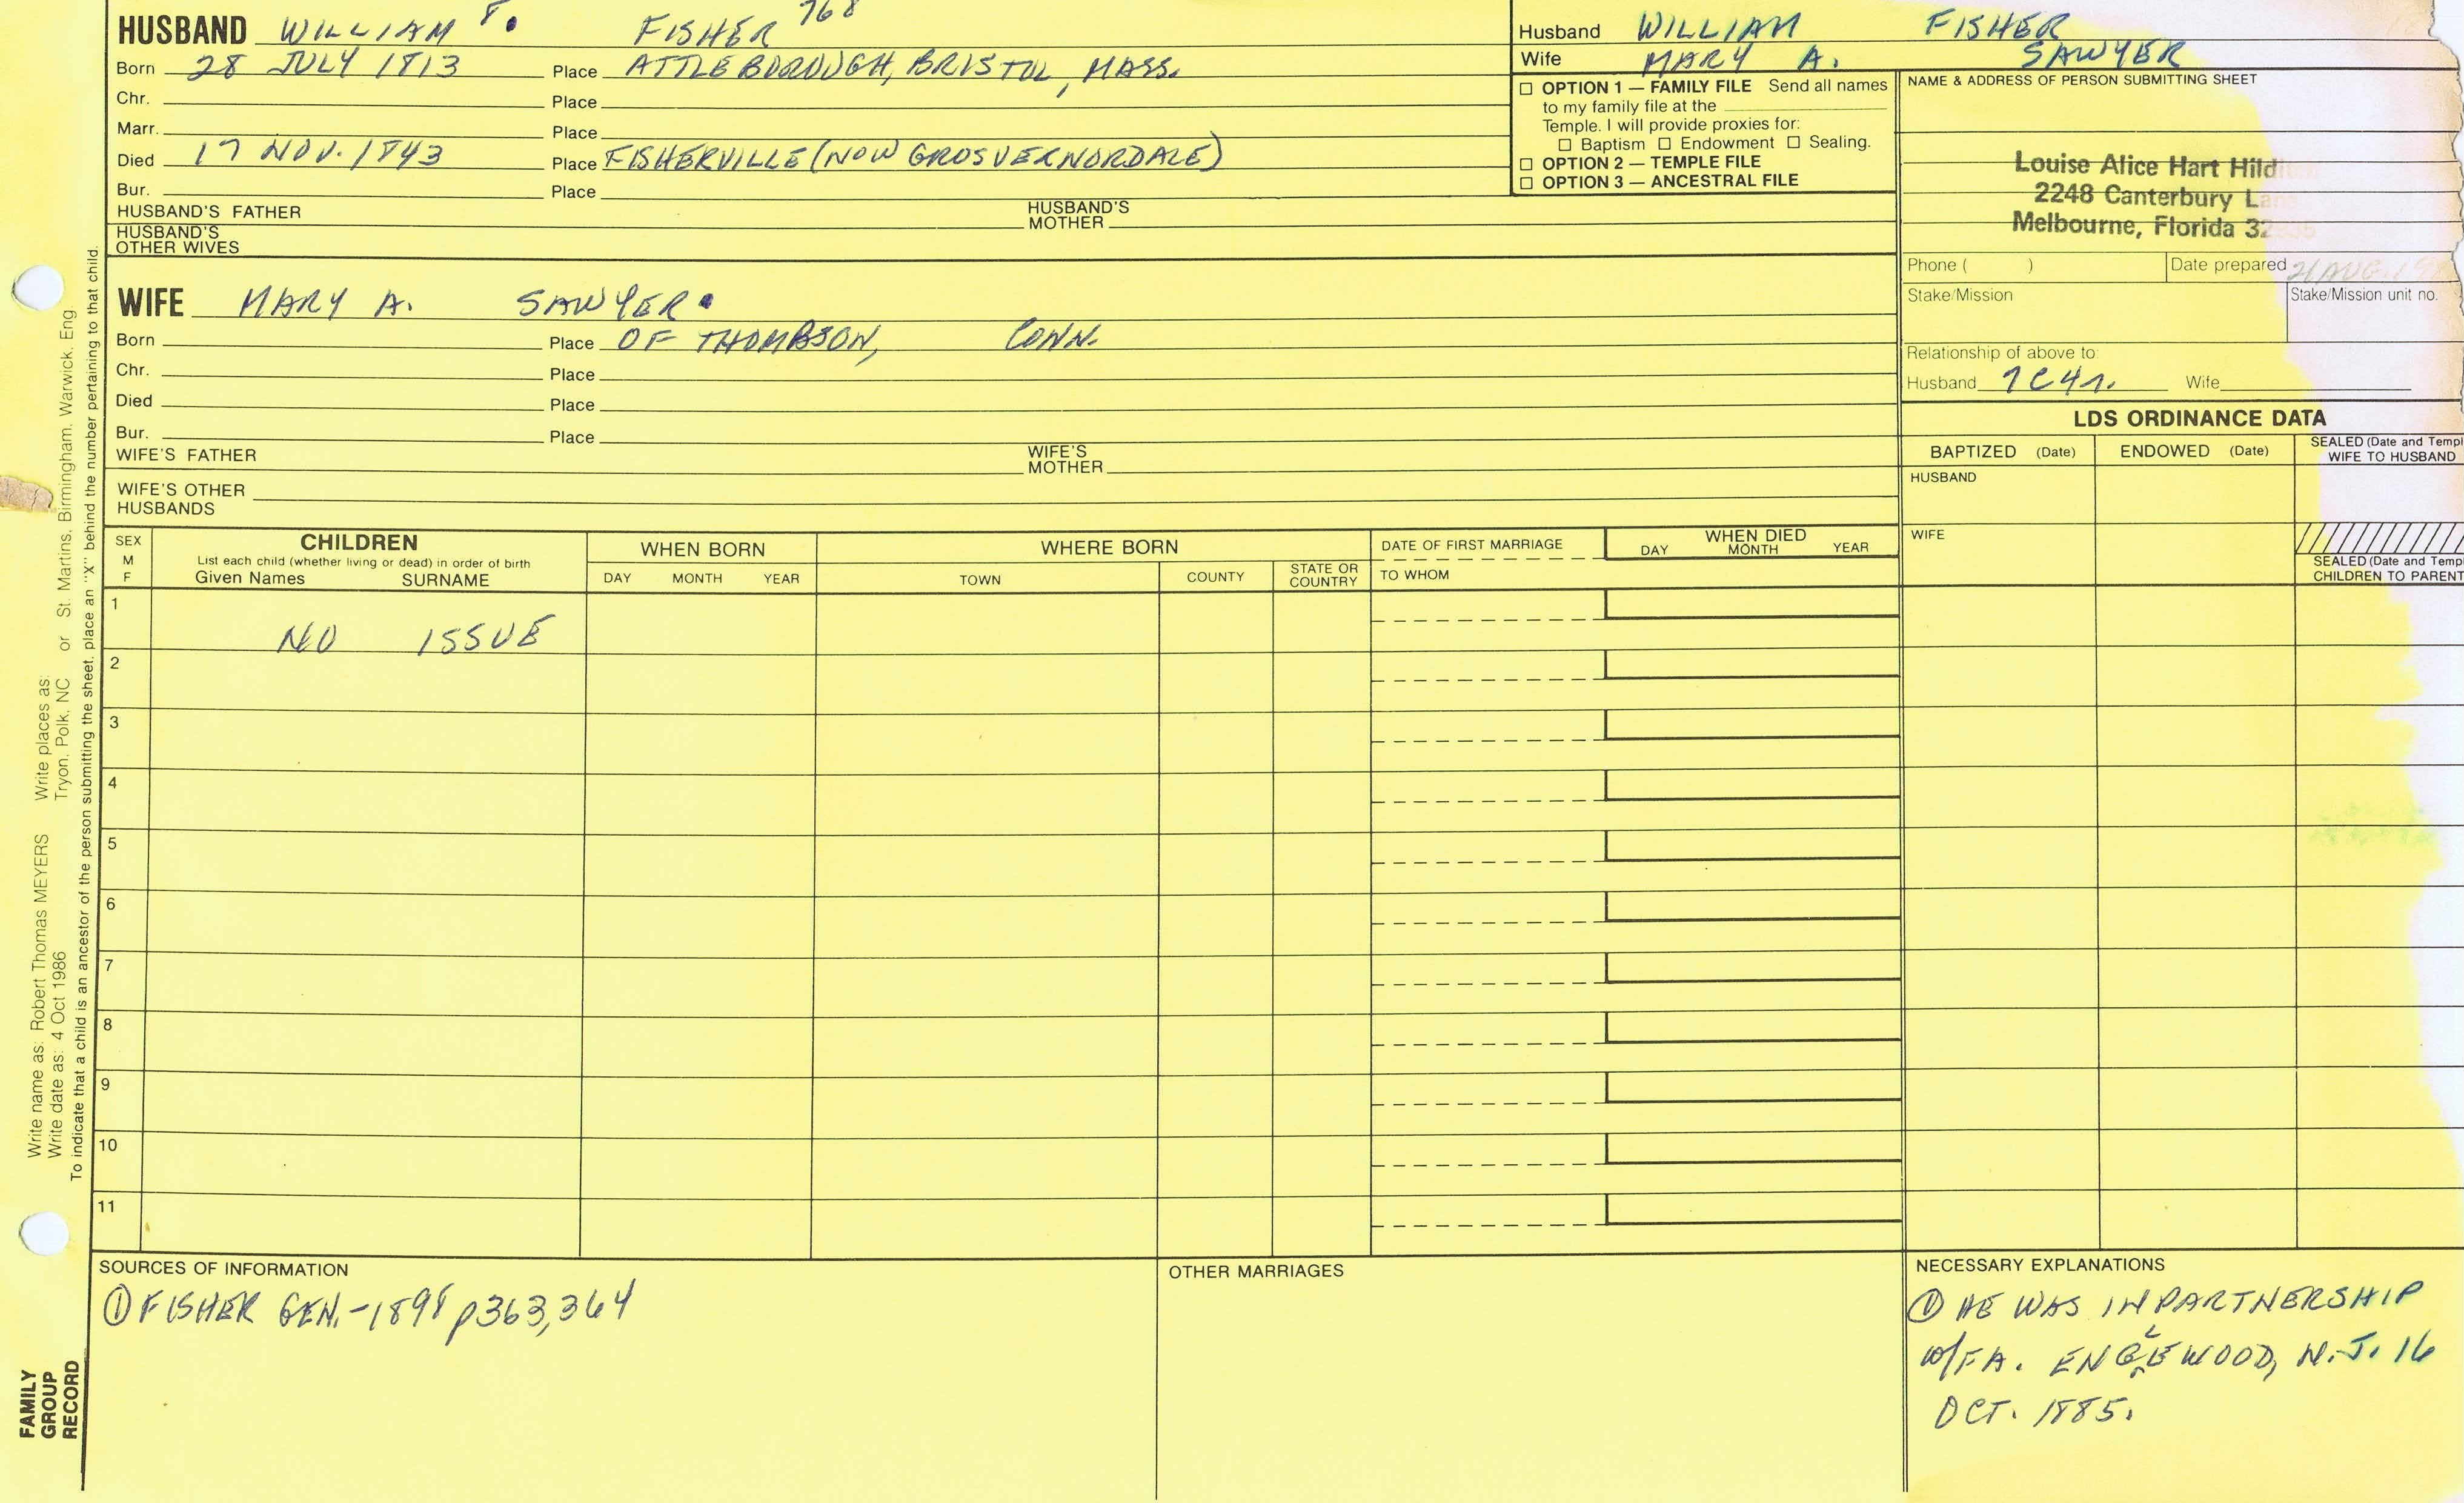 HUSBAND WILLIAM 8. FISHER 768
Born 28 JULY 1813 Place ATTLEBOROUGH, BRISTOL, MASS.
Chr. Place
Marr. Place
Died 17 NOV. 1843 Place FISHERVILLE (NOW GROSVERNORDALE)
Bur. Place
HUSBAND'S FATHER HUSBAND'S MOTHER
HUSBAND'S OTHER WIVES
WIFE MARY A. SAWYER
Born Place OF THOMPSON, CONN.
Chr. Place
Died Place
Bur. Place
WIFE'S FATHER WIFE'S MOTHER
WIFE'S OTHER HUSBANDS
Husband WILLIAM FISHER
Wife MARY A. SAWYER
☐ OPTION 1 — FAMILY FILE Send all names
to my family file at the
Temple. I will provide proxies for:
☐ Baptism ☐ Endowment ☐ Sealing.
☐ OPTION 2 — TEMPLE FILE
☐ OPTION 3 — ANCESTRAL FILE
NAME & ADDRESS OF PERSON SUBMITTING SHEET
Louise Alice Hart
2248 Canterbury
Melbourne, Florida
Phone ( ) Date prepared 21 AUG.
Stake/Mission Stake/Mission unit no.
Relationship of above to:
Husband 7C4r. Wife
LDS ORDINANCE DATA
BAPTIZED (Date) ENDOWED (Date) SEALED (Date and Templ
WIFE TO HUSBAND
HUSBAND
WIFE
SEALED (Date and Temp
CHILDREN TO PARENT
SEX
M
F
CHILDREN
List each child (whether living or dead) in order of birth
Given Names SURNAME
WHEN BORN
DAY MONTH YEAR
WHERE BORN
TOWN COUNTY STATE OR COUNTRY
DATE OF FIRST MARRIAGE
TO WHOM
WHEN DIED
DAY MONTH YEAR
1 NO ISSUE
2
3
4
5
6
7
8
9
10
11
SOURCES OF INFORMATION
① FISHER GEN.-1898 p363,364
OTHER MARRIAGES
NECESSARY EXPLANATIONS
① HE WAS IN PARTNERSHIP
w/FA. ENGLEWOOD, N.J. 16
OCT. 1885.
Write name as: Robert Thomas MEYERS Write places as: St. Martins, Birmingham, Warwick, Eng.
Write date as: 4 Oct 1986 Tryon, Polk, NC or
To indicate that a child is an ancestor of the person submitting the sheet, place an "X" behind the number pertaining to that child.
FAMILY
GROUP
RECORD